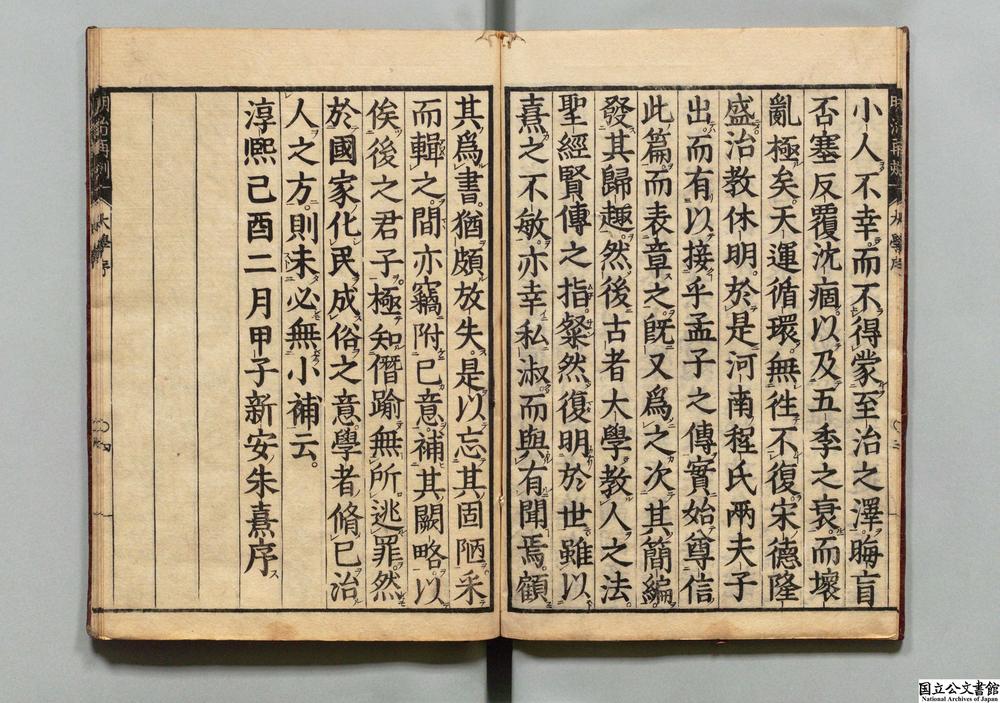 小人不幸而不得蒙至治之澤晦盲
否塞反覆沈痼以及五季之衰而壞
亂極矣天運循環無徃不復宋德隆
盛治教休明於是河南程氏兩夫子
出而有以接乎孟子之傳實始尊信
此篇而表章之旣又爲之次其簡編
發其歸趣然後古者大學教人之法
聖經賢傳之指粲然復明於世雖以
熹之不敏亦幸私淑而與有聞焉顧
其爲書猶頗放失是以忘其固陋采
而輯之間亦竊附已意補其闕略以
俟後之君子極知僭踰無所逃罪然
於國家化民成俗之意學者脩已治
人之方則未必無小補云。
淳熙己酉二月甲子新安朱熹序
大學序
國立公文書館
National Archives of Japan